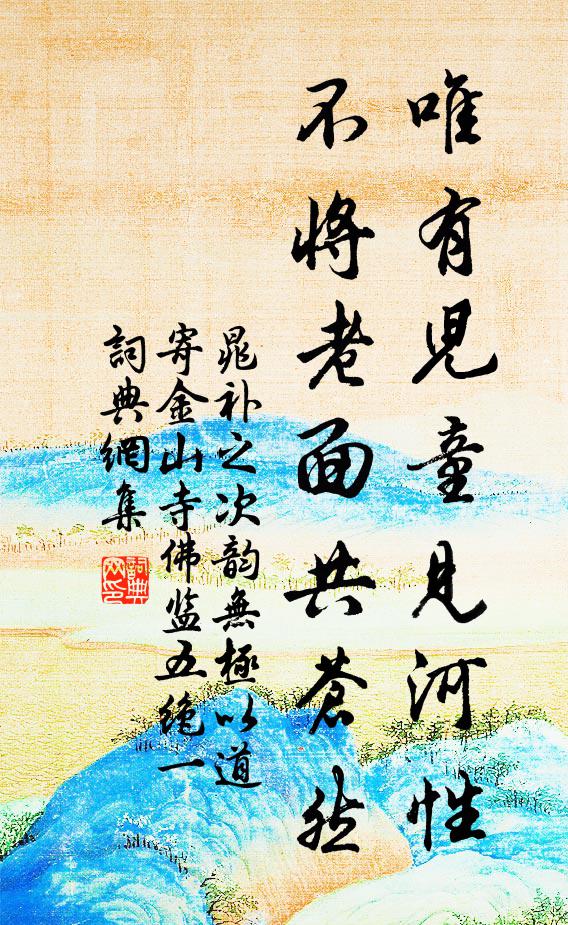 唯有児童見河性
不将老面共蒼然
晁补之次韵無極以道
寄金山寺佛监五绝一
詞典網集
詞典
网印